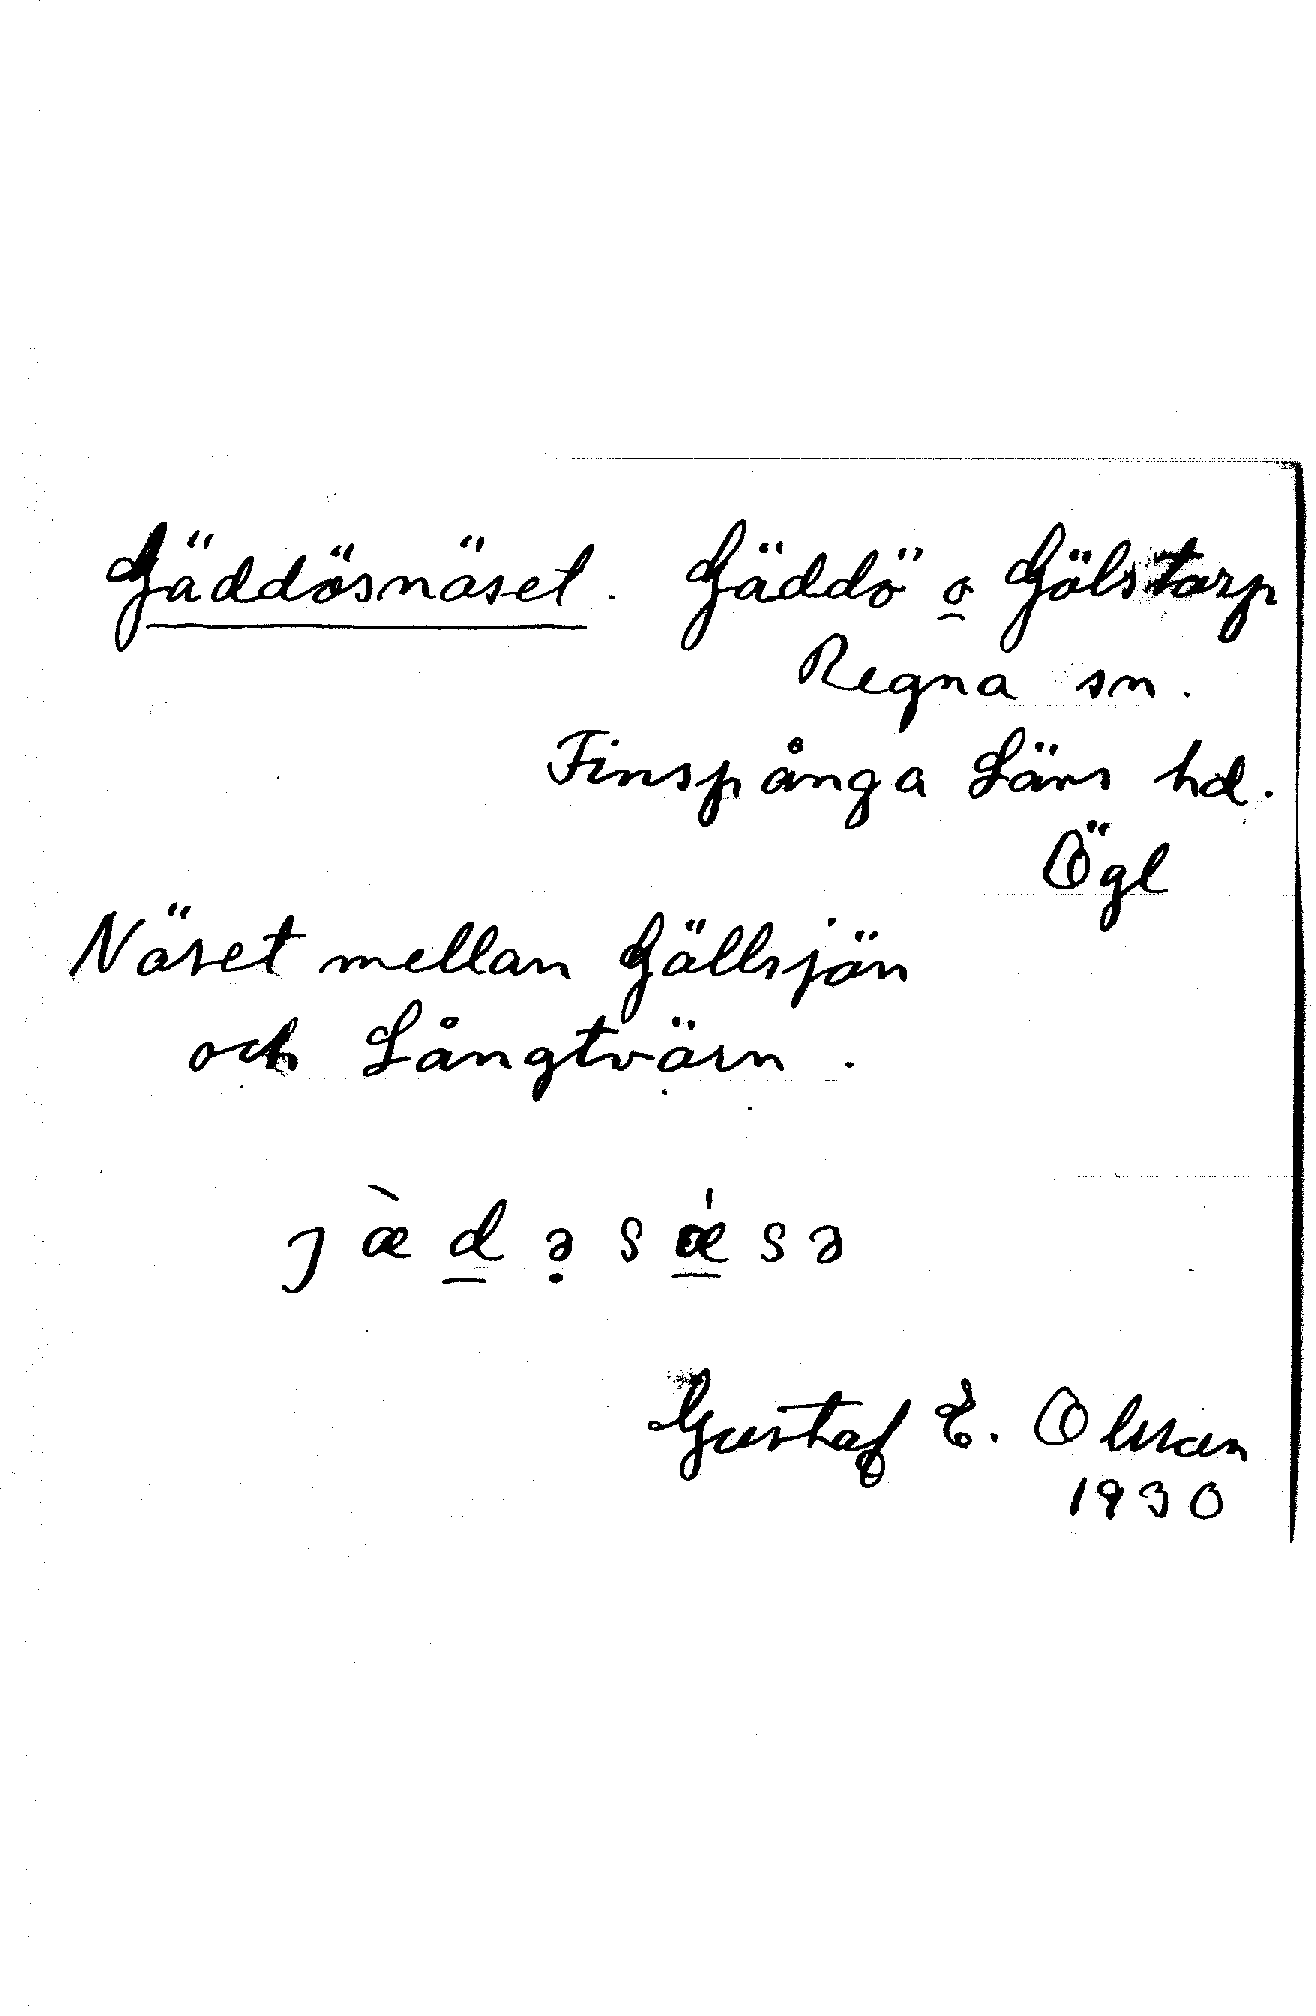 Gäddösnäset. Gäddö o Gölstorp
Regna sn.
Finspånga Läns hd.
Ögl
Näset mellan Gällsjön
och Långtvärn.
jæ̀d̲ə̣sǽ̲sə
Gustaf E. Olsson
1930